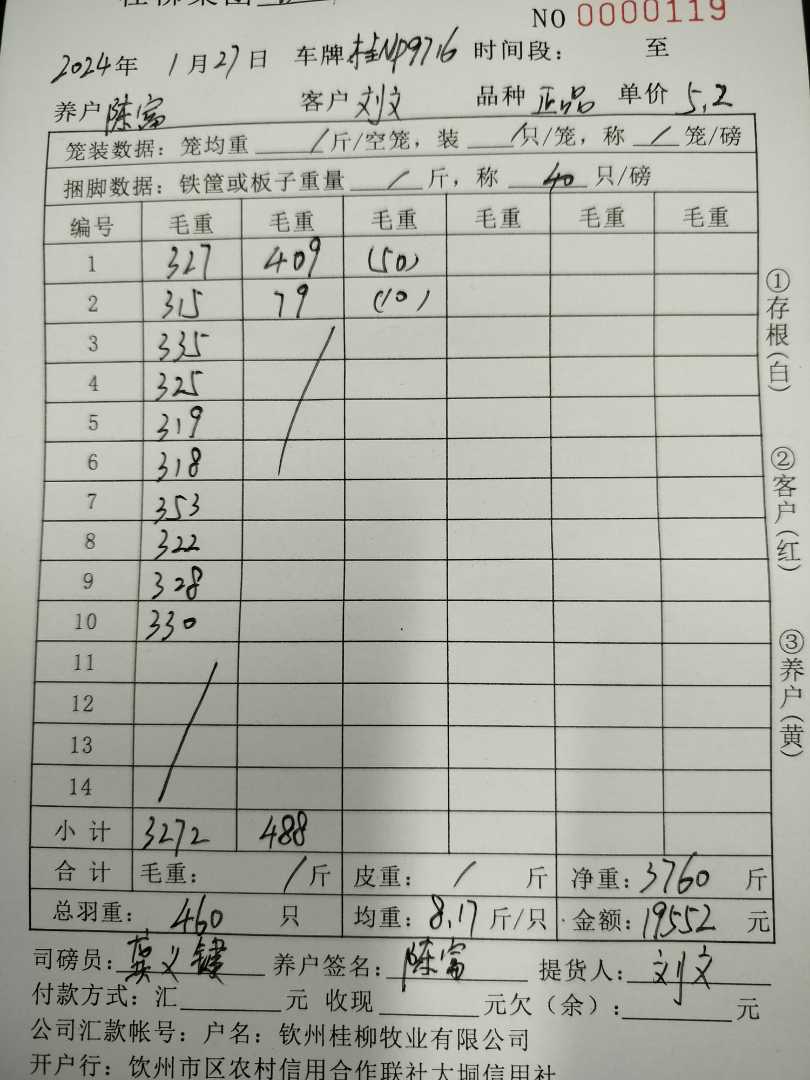 NO 0000119
2024年 1月27日 车牌 桂NP9716 时间段： 至
养户 陈富 客户 刘文 品种 正品 单价 5.2
笼装数据：笼均重 / 斤/空笼，装 / 只/笼，称 / 笼/磅
捆脚数据：铁筐或板子重量 / 斤，称 40 只/磅
编号 毛重 毛重 毛重 毛重 毛重 毛重
1 327 409 (50)
2 315 79 (10)
3 335 /
4 325
5 319
6 318
7 353
8 322
9 328
10 330
11 /
12
13
14
小计 3272 488
合计 毛重： / 斤 皮重： / 斤 净重：3760 斤
总羽重： 460 只 均重：8.17 斤/只 金额：19552 元
司磅员： 义 养户签名：陈富 提货人：刘文
付款方式：汇 元 收现 元欠（余）： 元
公司汇款帐号：户名：钦州桂柳牧业有限公司
开户行：饮州市区农村信用合作联社大垌信用社
①存根(白)
②客户(红)
③养户(黄)